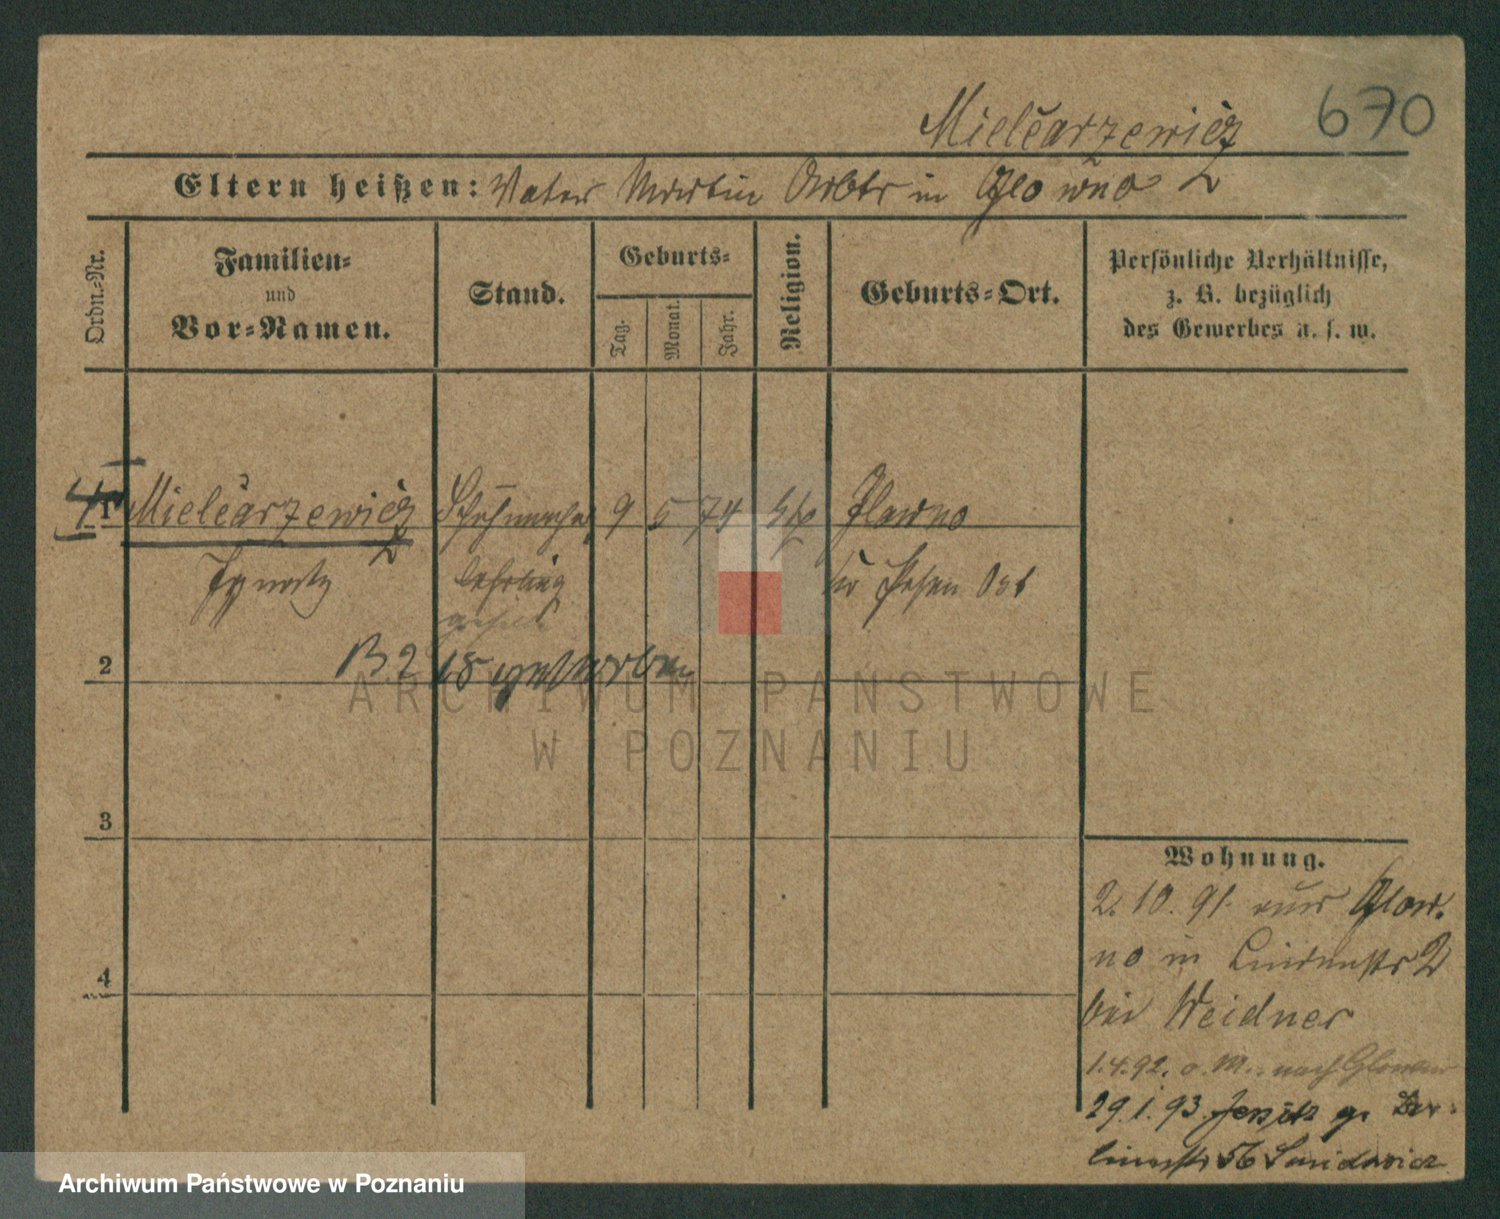 670
Mielcarzewicz
Eltern heißen: Vater Martin Arbtr in Glowno
Ordn.-Nr.
Familien-
und
Vor-Namen.
Stand.
Geburts-
Tag.
Monat.
Jahr.
Religion.
Geburts-Ort.
Persönliche Verhältnisse,
z. B. bezüglich
des Gewerbes u. s. w.
1 Mielcarzewicz Schuhmacher 9 5 74 kth Glowno
Ignatz lehrling Kr Posen Ost
gesell
B. 2 18 gestorben
2
3
4
Wohnung.
2. 10. 91. aus Glow.
no in Lindenstr 2
bei Weidner
1.4.92. o. M. nach Glowno
29.1.93 Jersitz
56
ARCHIWUM PAŃSTWOWE
W POZNANIU
Archiwum Państwowe w Poznaniu